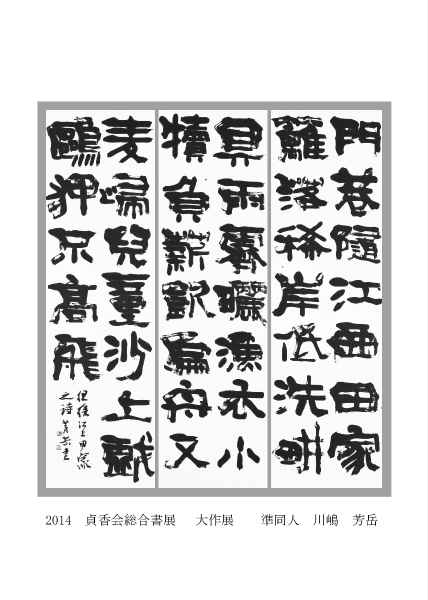 門巷隨江曲田家
籬落稀岸低洗耕
具雨霽曬漁衣小
犢負薪飲扁舟乂
麥歸兒童沙上戲
鷗狎不高飛
徂徠江上田家
之詩 芳岳書
2014 貞香会総合書展 大作展 準同人 川嶋 芳岳